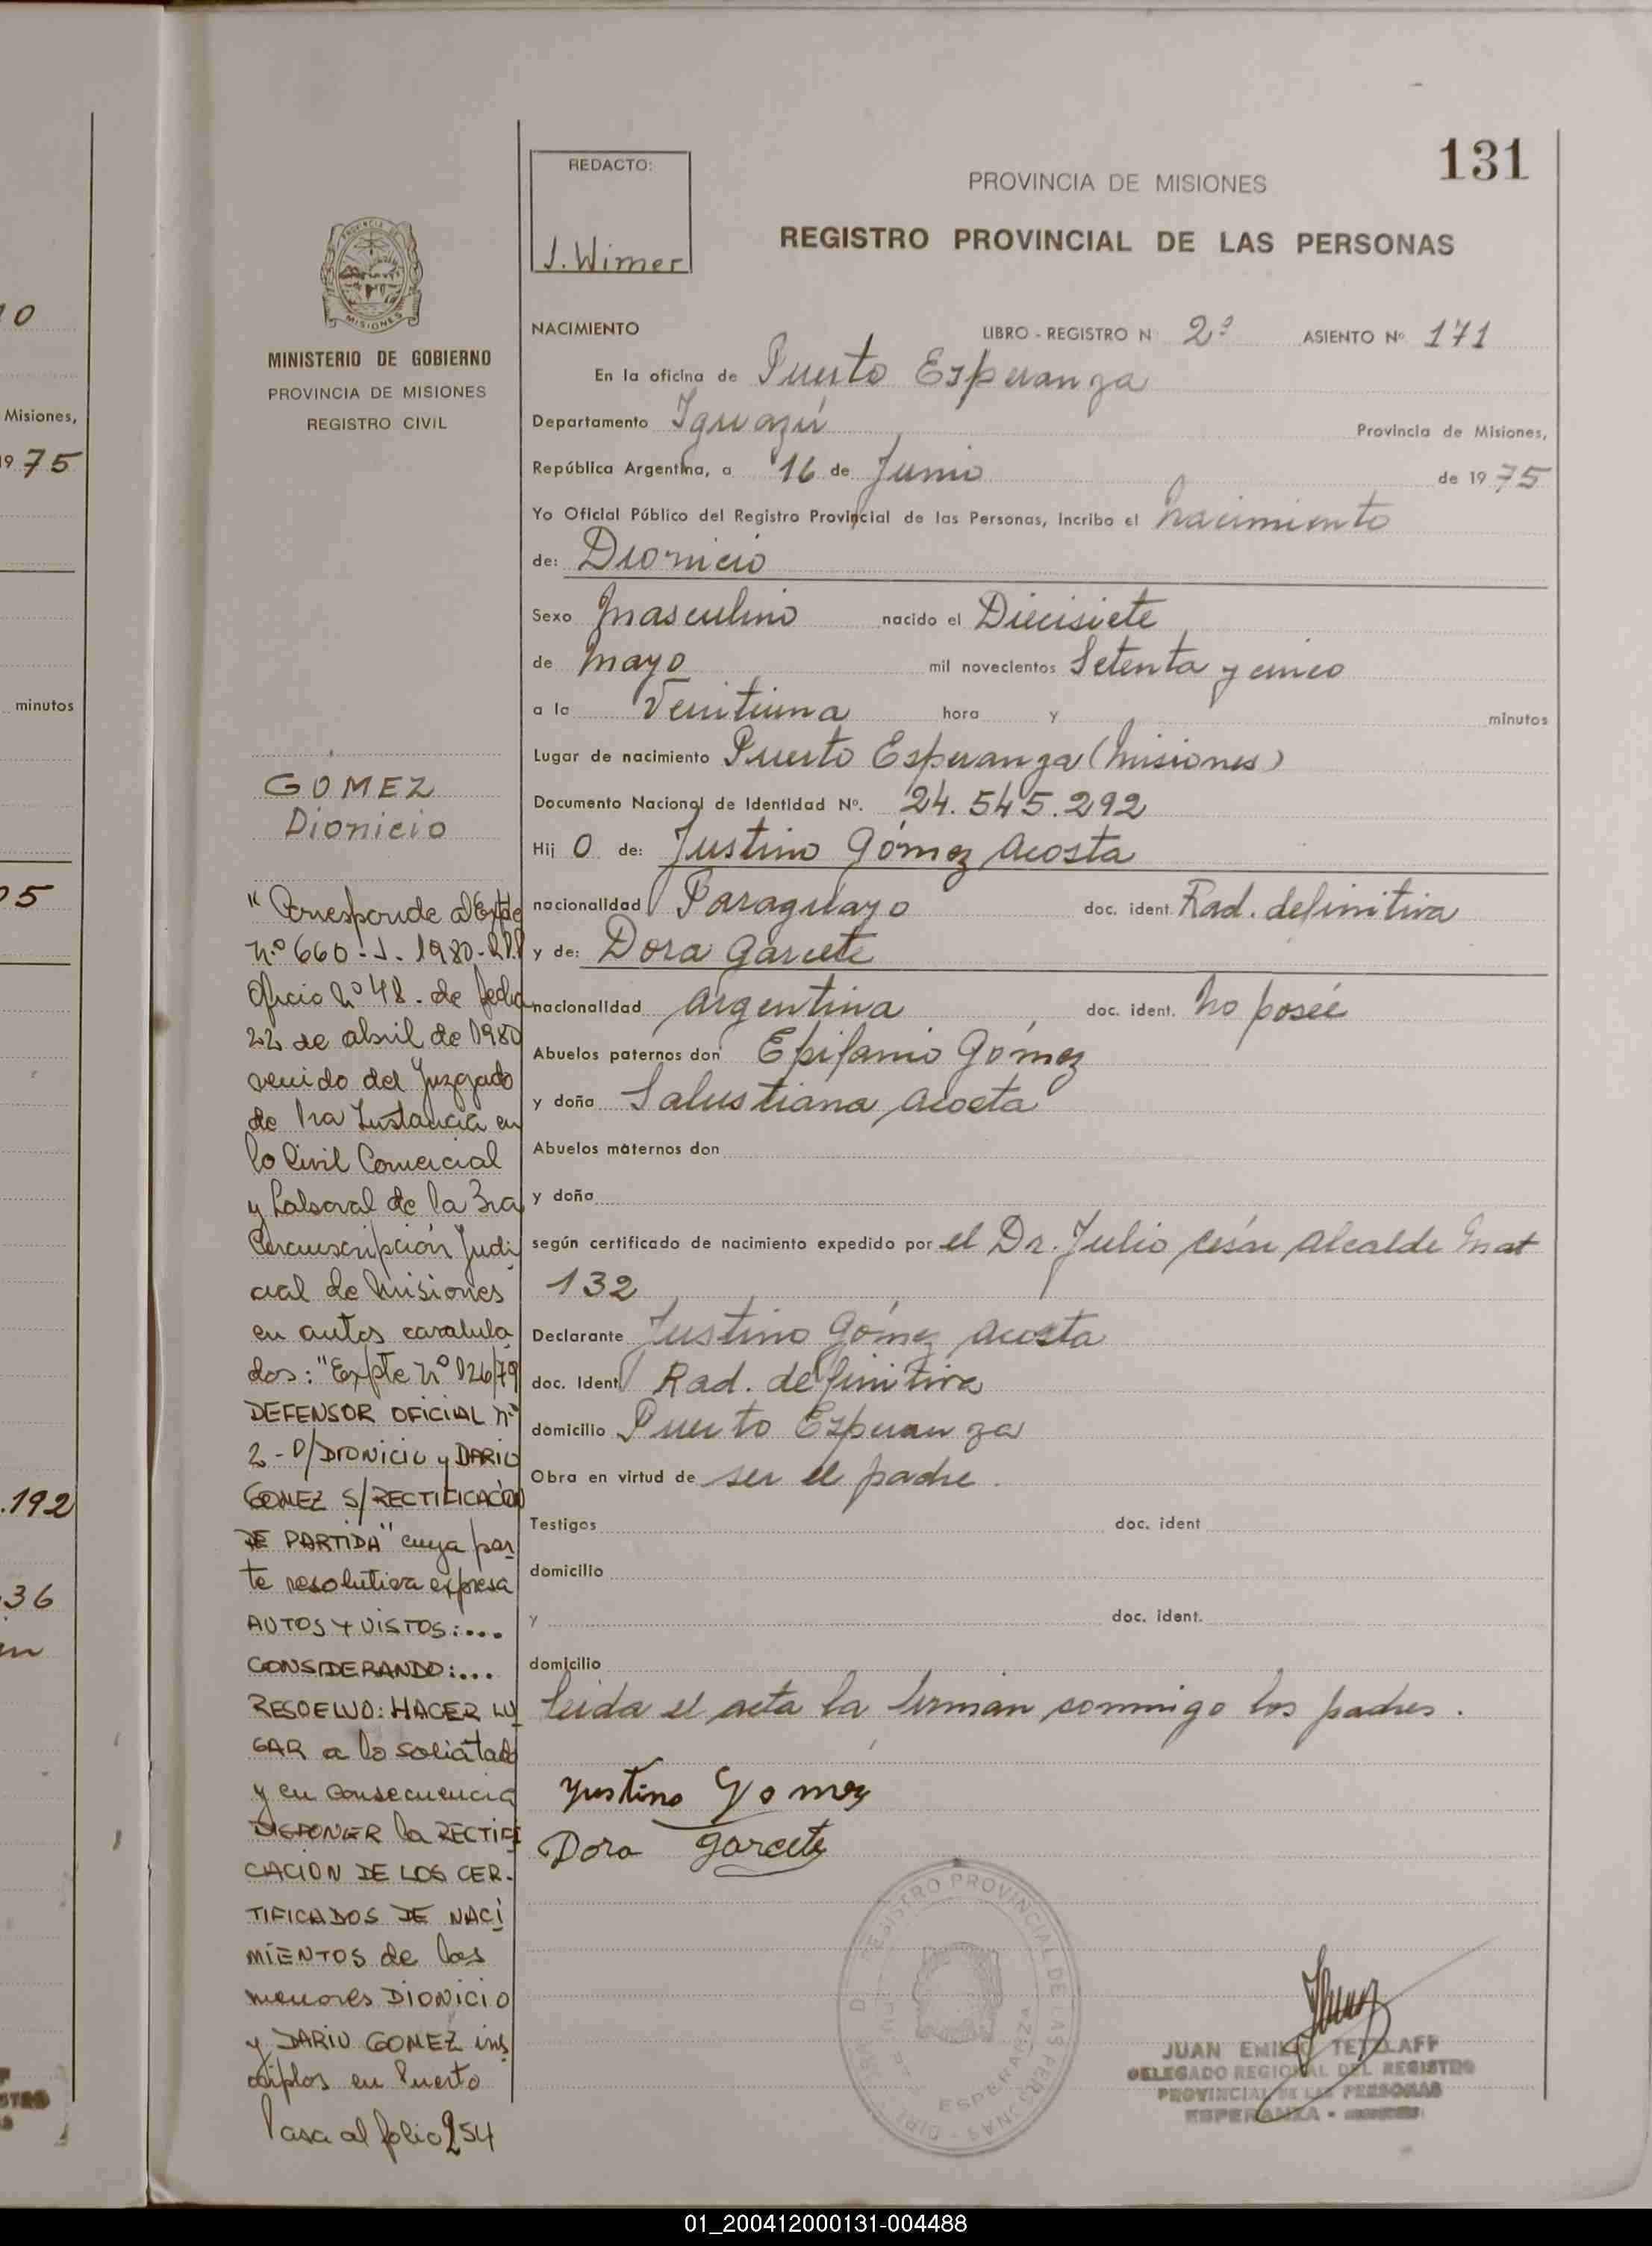 10
Misiones,
19 75
minutos
05
.192
36
131
REDACTO:
J. Wimer
PROVINCIA DE MISIONES
REGISTRO PROVINCIAL DE LAS PERSONAS
MISIONES
MINISTERIO DE GOBIERNO
PROVINCIA DE MISIONES
REGISTRO CIVIL
NACIMIENTO LIBRO - REGISTRO N 2º ASIENTO Nº 171
En la oficina de Puerto Esperanza
Departamento Iguazú Provincia de Misiones,
República Argentina, a 16 de Junio de 19 75
Yo Oficial Público del Registro Provincial de las Personas, incribo el nacimiento
de: Dionicio
Sexo Masculino nacido el Diecisiete
de mayo mil novecientos Setenta y cinco
a la Veintiuna hora y minutos
Lugar de nacimiento Puerto Esperanza (Misiones)
Documento Nacional de Identidad Nº. 24.545.292
Hij o de: Justino Gómez Acosta
nacionalidad Paraguayo doc. ident. Rad. definitiva
y de: Dora Garcete
nacionalidad Argentina doc. ident. No poseé
Abuelos paternos don Epifanio Gómez
y doña Salustiana Acosta
Abuelos maternos don
y doña
según certificado de nacimiento expedido por el Dr. Julio César Alcalde Mat
132
Declarante Justino Gómez Acosta
doc. Ident Rad. definitiva
domicilio Puerto Esperanza
Obra en virtud de ser el padre.
Testigos doc. ident
domicilio
y doc. ident.
domicilio
leida el acta la firman conmigo los padres.
Yustino Gomez
Dora Garcete
REGISTRO PROVINCIAL DE LAS PERSONAS
ESPERANZA
JUAN EMILIO TETZLAFF
DELEGADO REGIONAL DEL REGISTRO
PROVINCIAL DE LAS PERSONAS
ESPERANZA -
GOMEZ
Dionicio
"Corresponde al Expte
Nº 660-J-1980-R.P.P
Oficio Nº 48. de fecha
22 de abril de 1980
venido del Juzgado
de 1ra Instancia en
lo Civil Comercial
y Laboral de la 3ra
Circunscripción Judi
cial de Misiones
en autos caratula
dos: "Expte Nº 126/79
DEFENSOR OFICIAL Nº
2 - D/DIONICIO y DARIO
GOMEZ S/RECTIFICACION
DE PARTIDA" cuya par
te resolutiva expresa
AUTOS Y VISTOS:....
CONSIDERANDO:...
RESUELVO: HACER LU
GAR a lo solicitado
y en consecuencia
DISPONER la RECTIFI
CACION DE LOS CER-
TIFICADOS DE NACI
MIENTOS de los
menores DIONICIO
y DARIO GOMEZ ins
criptos en Puerto
Pasa al folio 254
01_200412000131-004488